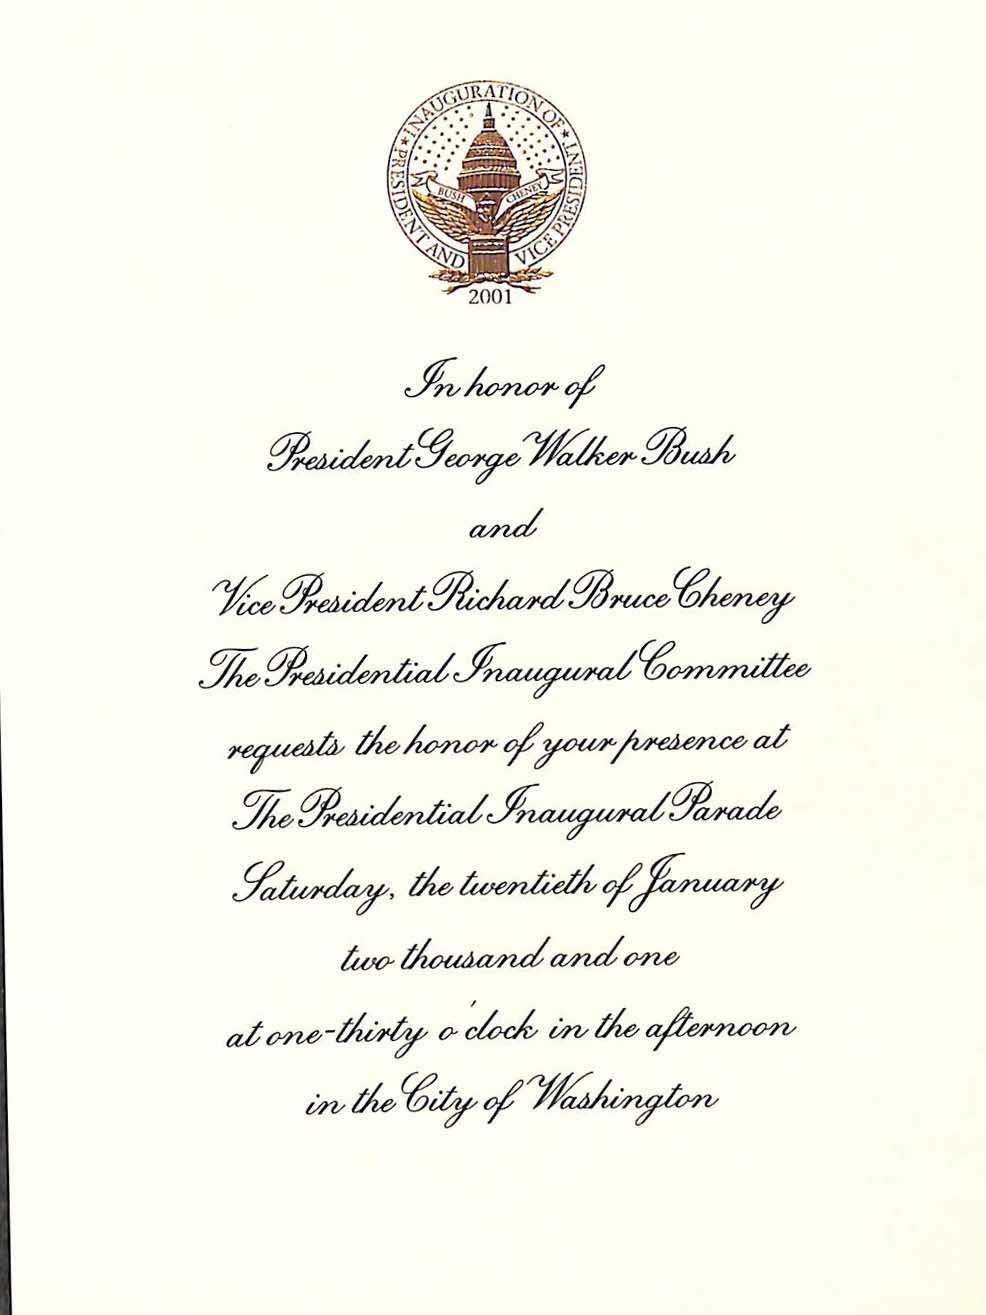 ★ INAUGURATION OF ★
PRESIDENT AND VICE PRESIDENT
BUSH CHENEY
2001
In honor of
President George Walker Bush
and
Vice President Richard Bruce Cheney
The Presidential Inaugural Committee
requests the honor of your presence at
The Presidential Inaugural Parade
Saturday, the twentieth of January
two thousand and one
at one-thirty o'clock in the afternoon
in the City of Washington